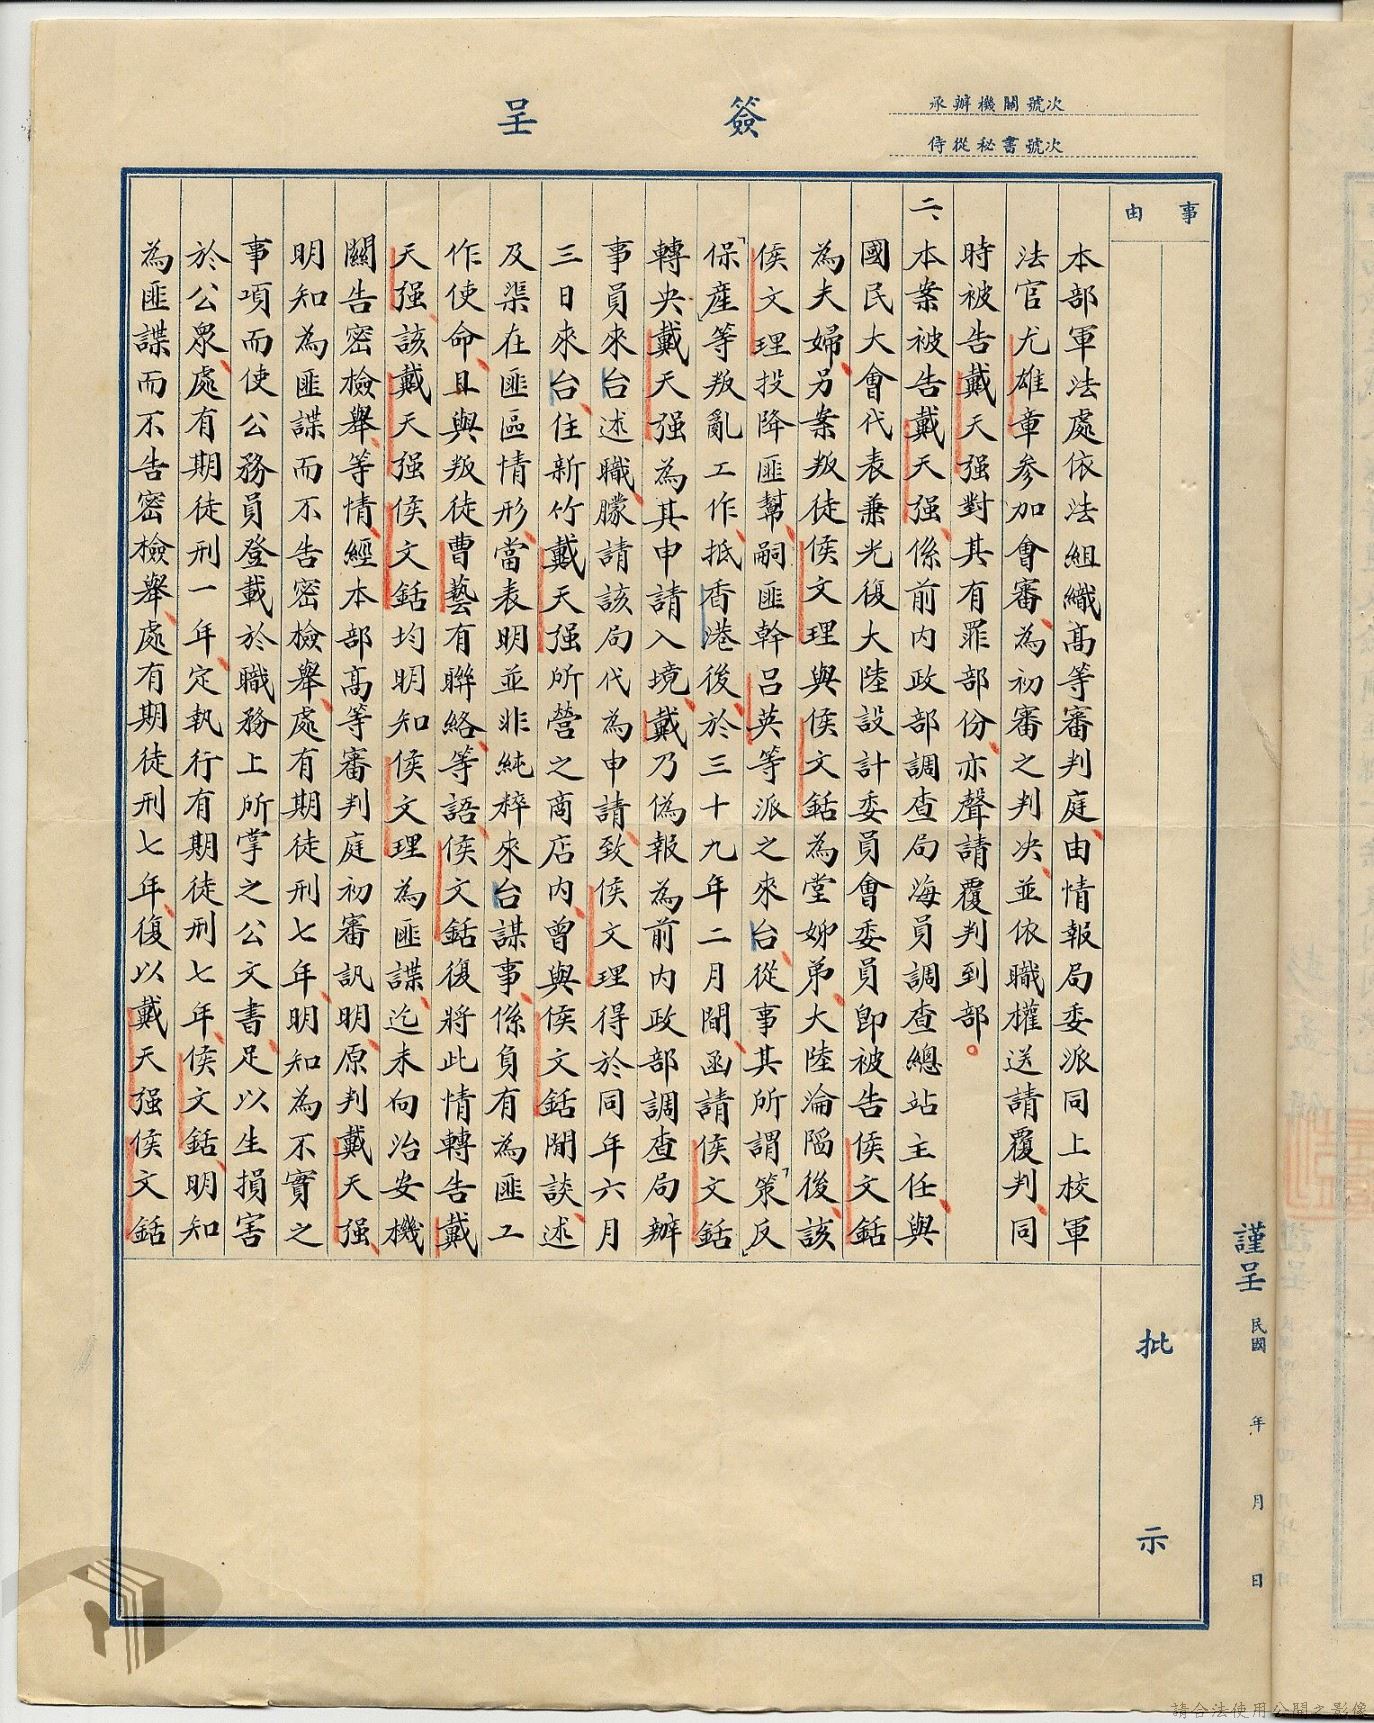 簽呈
承辦機關號次
侍從秘書號次
事由
本部軍法處依法組織高等審判庭由情報局委派同上校軍
法官尤雄章參加會審為初審之判决並依職權送請覆判同
時被告戴天强對其有罪部份亦聲請覆判到部。
二、本案被告戴天强係前内政部調查局海員調查總站主任與
國民大會代表兼光復大陸設計委員會委員即被告侯文銛
為夫婦另案叛徒侯文理與侯文銛為堂姊弟大陸淪陷後該
侯文理投降匪幫嗣匪幹呂英等派之來台從事其所謂「策反
保產」等叛亂工作抵香港後於三十九年二月間函請侯文銛
轉央戴天强為其申請入境戴乃偽報為前内政部調查局辦
事員來台述職朦請該局代為申請致侯文理得於同年六月
三日來台住新竹戴天强所營之商店内曾與侯文銛閒談述
及渠在匪區情形當表明並非純粹來台謀事係負有為匪工
作使命且與叛徒曹藝有聯絡等語侯文銛復將此情轉告戴
天强該戴天强侯文銛均明知侯文理為匪諜迄未向治安機
關告密檢舉等情經本部高等審判庭初審訊明原判戴天强
明知為匪諜而不告密檢舉處有期徒刑七年明知為不實之
事項而使公務員登載於職務上所掌之公文書足以生損害
於公眾處有期徒刑一年定執行有期徒刑七年侯文銛明知
為匪諜而不告密檢舉處有期徒刑七年復以戴天强侯文銛
批示
謹呈
民國 年 月 日
請合法使用公開之影像